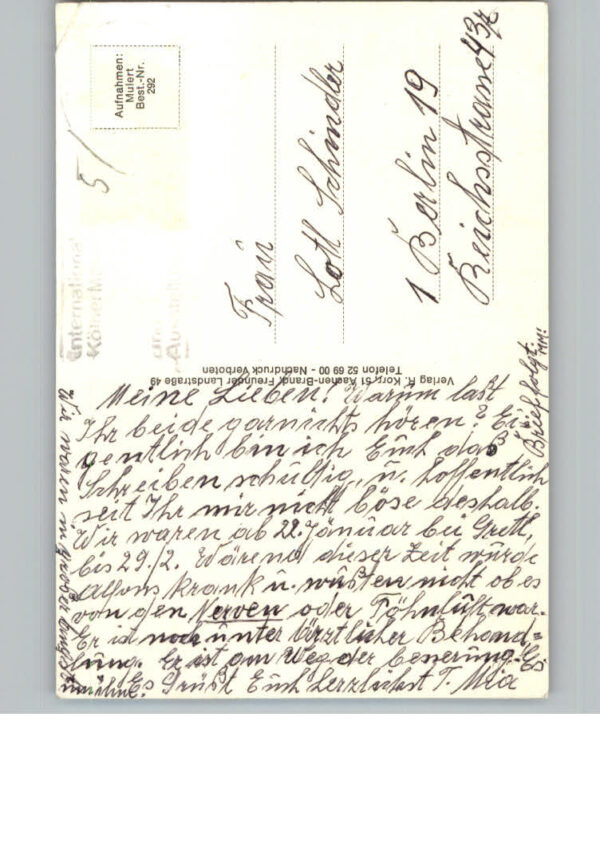 Aufnahmen:
Mulert
Best.-Nr.
292
5
International
Kölner
Frau
Lotl Schinder
1 Berlin 19
Reichsstrasse 43
Verlag R. Korr, 51 Aachen-Brand, Freunder Landstraße 49
Telefon 52 69 00 - Nachdruck verboten
Meine Lieben! Warum last
Ihr beide garnichts hören? Ei-
gentlich bin ich Euch das
Schreiben schuldig, u. hoffentlich
seit Ihr mir nicht böse deshalb.
Wir waren ab 22. Jänuar bei Gretl,
bis 29./2. Wärend dieser Zeit wurde
Alfons krank u. wusten nicht ob es
von den Nerven oder Föhnluft war.
Er ist noch unter ärztlicher Behand=
lung. Er ist am Weg der besserung.
Es Grüst Euch herzlichst T. Mia
Wir waren in großer Angst
Brief folgt.